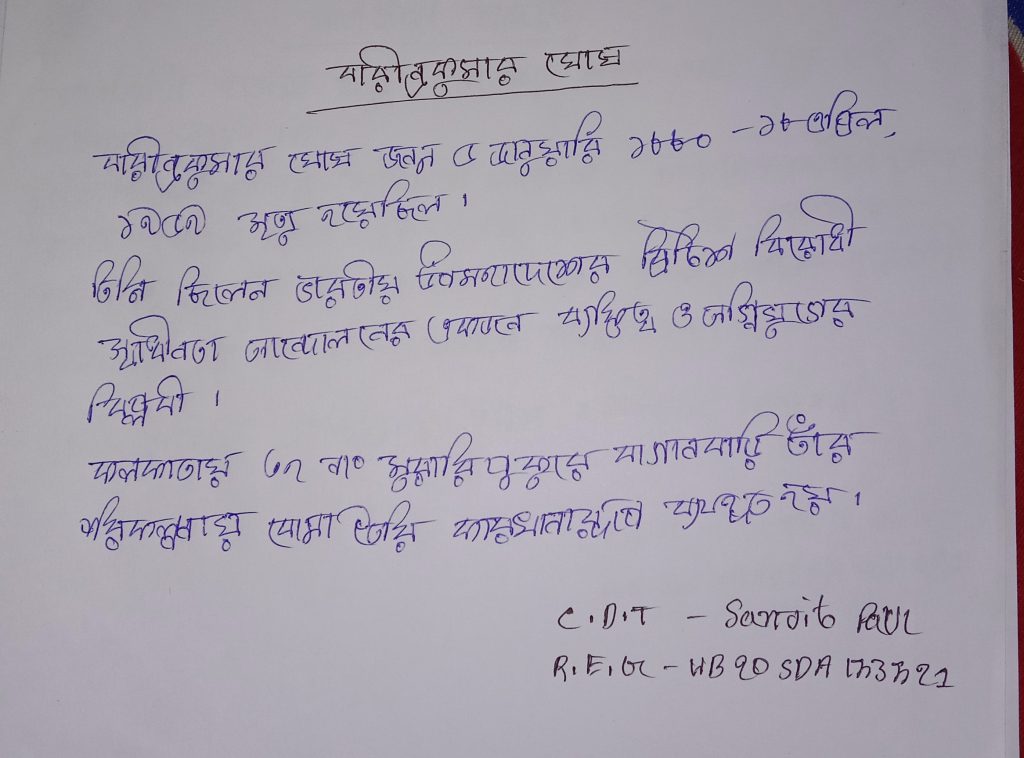 বারীন্দ্রকুমার ঘোষ
বারীন্দ্রকুমার ঘোষ জন্ম ৫ জানুয়ারি ১৮৮০ - ১৮ এপ্রিল,
১৯৫৯ মৃত্যু হয়েছিল।
তিনি ছিলেন ভারতীয় উপমহাদেশের ব্রিটিশ বিরোধী
স্বাধীনতা আন্দোলনের একজন ব্যক্তিত্ব ও অগ্নিযুগের
বিপ্লবী।
কলকাতায় ৩২ নং মুরারিপুকুরে বাগানবাড়ি তাঁর
পরিকল্পনায় বোমা তৈরি কারখানারূপে ব্যবহৃত হয়।
C.D.T - Sarroit Paul
R.E.G - WB20SDA 133321